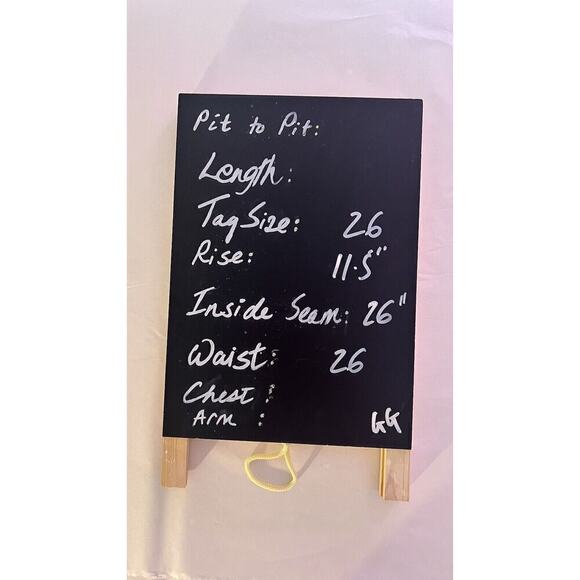 Pit to Pit:
Length:
Tag Size: 26
Rise: 11.5"
Inside Seam: 26"
Waist: 26
Chest :
Arm :
GG